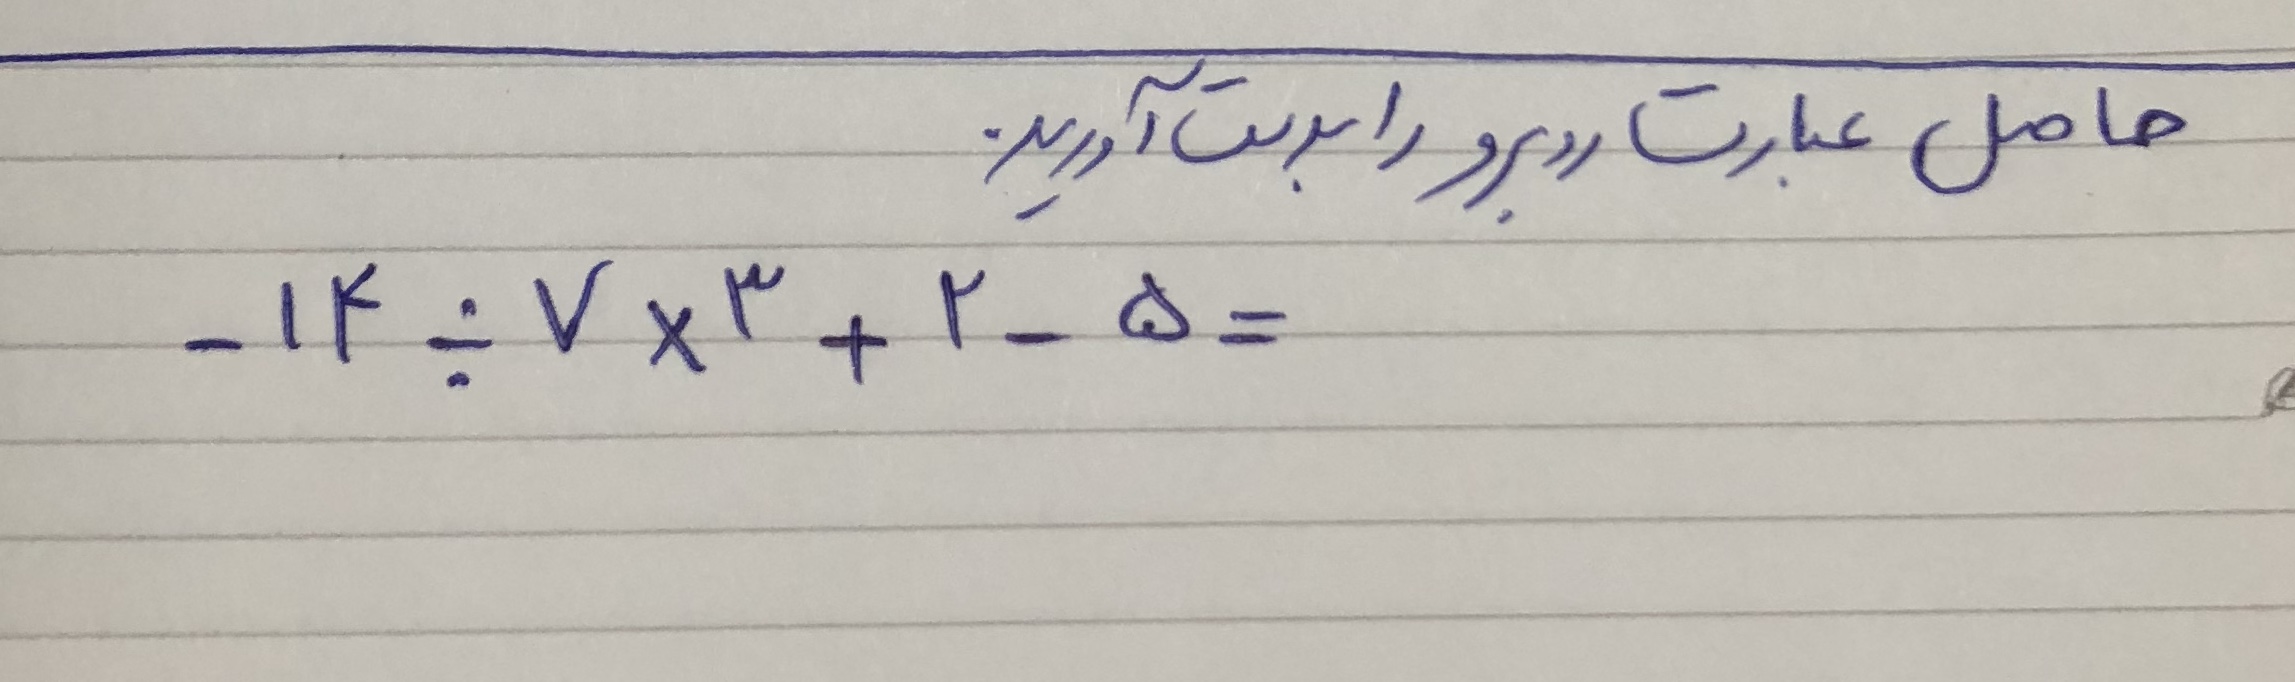 حاصل عبارت روبرو را بدست آورید.
- ۱۴ ÷ ۷ × ۳ + ۲ - ۵ =